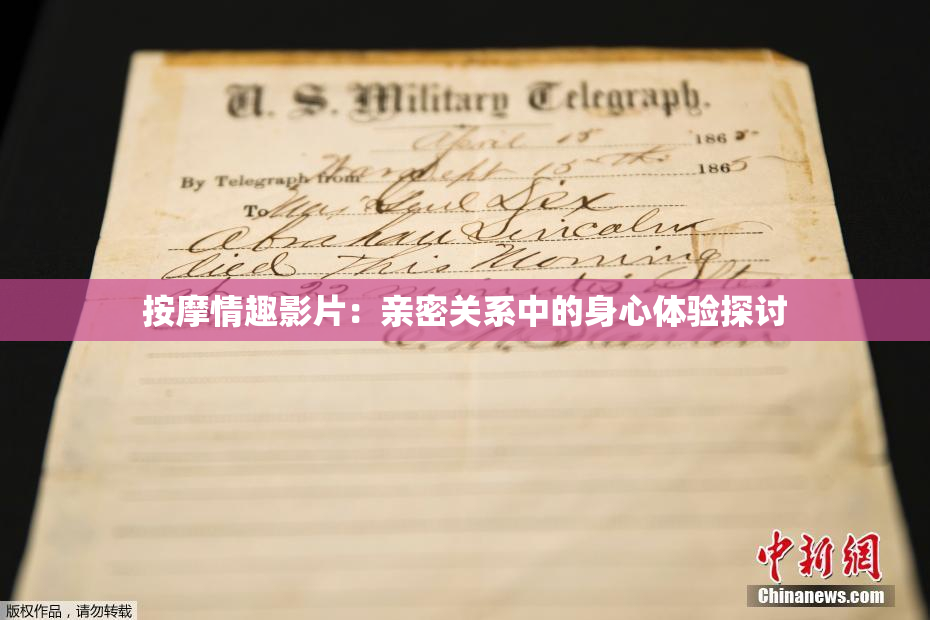 U. S. Military Telegraph.
April 15 1865
By Telegraph from War Dept 15th 1865
To Maj Genl Dix
Abraham Lincoln
died This Morning
at 22 minutes after
按摩情趣影片：亲密关系中的身心体验探讨
E. M. Stanton
中新网
Chinanews.com
版权作品，请勿转载